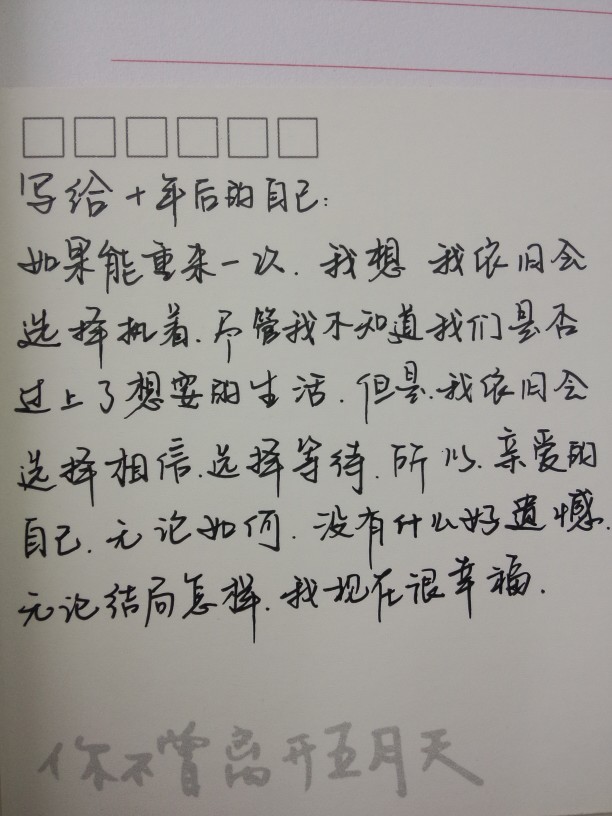 写给十年后的自己:
如果能重来一次.我想 我依旧会
选择执着.尽管我不知道我们是否
过上了想要的生活.但是.我依旧会
选择相信.选择等待.所以.亲爱的
自己.无论如何.没有什么好遗憾.
无论结局怎样.我现在很幸福.
你不曾离开五月天